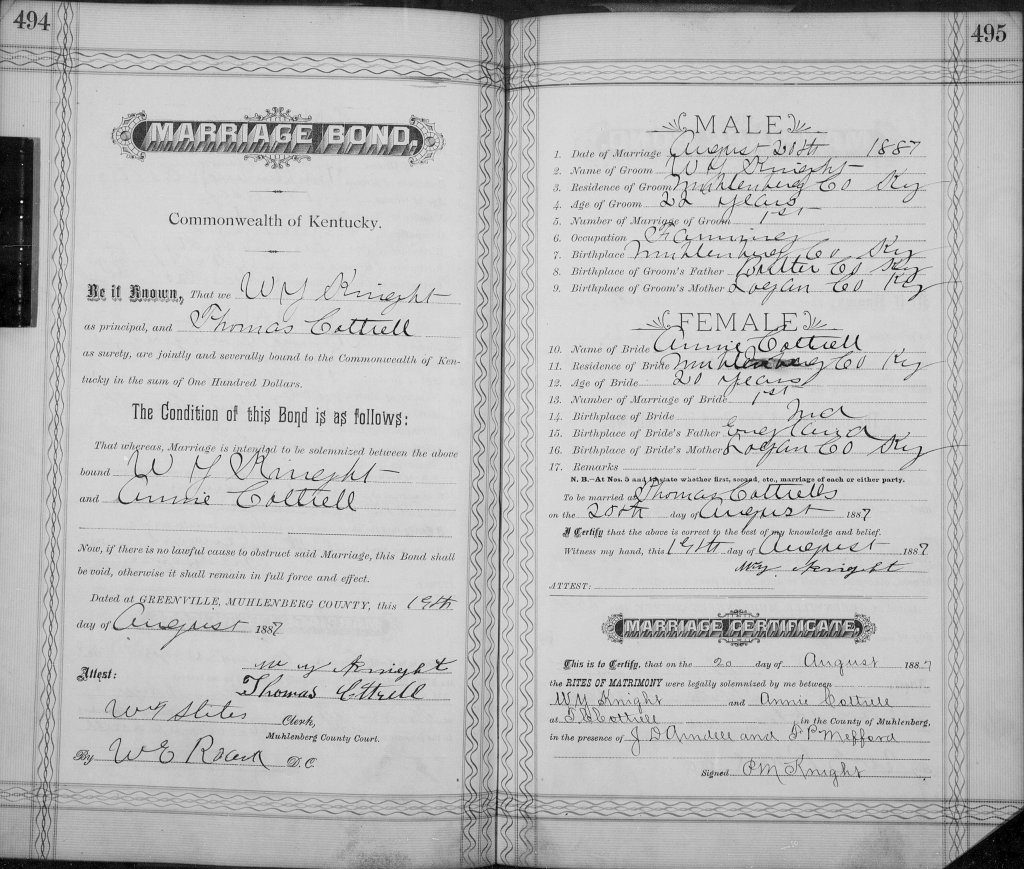 494
MARRIAGE BOND,
Commonwealth of Kentucky.
Be it Known, That we W Y Knight
as principal, and Thomas Cottrell
as surety, are jointly and severally bound to the Commonwealth of Ken-
tucky in the sum of One Hundred Dollars.
The Condition of this Bond is as follows:
That whereas, Marriage is intended to be solemnized between the above
bound W Y Knight
and Annie Cottrell
Now, if there is no lawful cause to obstruct said Marriage, this Bond shall
be void, otherwise it shall remain in full force and effect.
Dated at GREENVILLE, MUHLENBERG COUNTY, this 19th
day of August 1887
Attest:
W Y Knight
Thomas Cottrell
Clerk,
Muhlenberg County Court.
By W E D.C.
495
MALE
1. Date of Marriage August 20th 1887
2. Name of Groom W Y Knight
3. Residence of Groom Muhlenberg Co Ky
4. Age of Groom 22 years
5. Number of Marriage of Groom 1st
6. Occupation Farming
7. Birthplace Muhlenberg Co Ky
8. Birthplace of Groom's Father Co Ky
9. Birthplace of Groom's Mother Logan Co Ky
FEMALE
10. Name of Bride Annie Cottrell
11. Residence of Bride Muhlenberg Co Ky
12. Age of Bride 20 years
13. Number of Marriage of Bride 1st
14. Birthplace of Bride Ind
15. Birthplace of Bride's Father England
16. Birthplace of Bride's Mother Logan Co Ky
17. Remarks
N. B.—At Nos. 5 and 13 state whether first, second, etc., marriage of each or either party.
To be married at Thomas Cottrells
on the 20th day of August 1887
I Certify that the above is correct to the best of my knowledge and belief.
Witness my hand, this 19th day of August 1887
Knight
ATTEST:
MARRIAGE CERTIFICATE,
This is to Certify, that on the 20 day of August 1887
the RITES OF MATRIMONY were legally solemnized by me between
W Y Knight and Annie Cottrell
at Cottrell in the County of Muhlenberg,
in the presence of and Mefford
Signed P M Knight